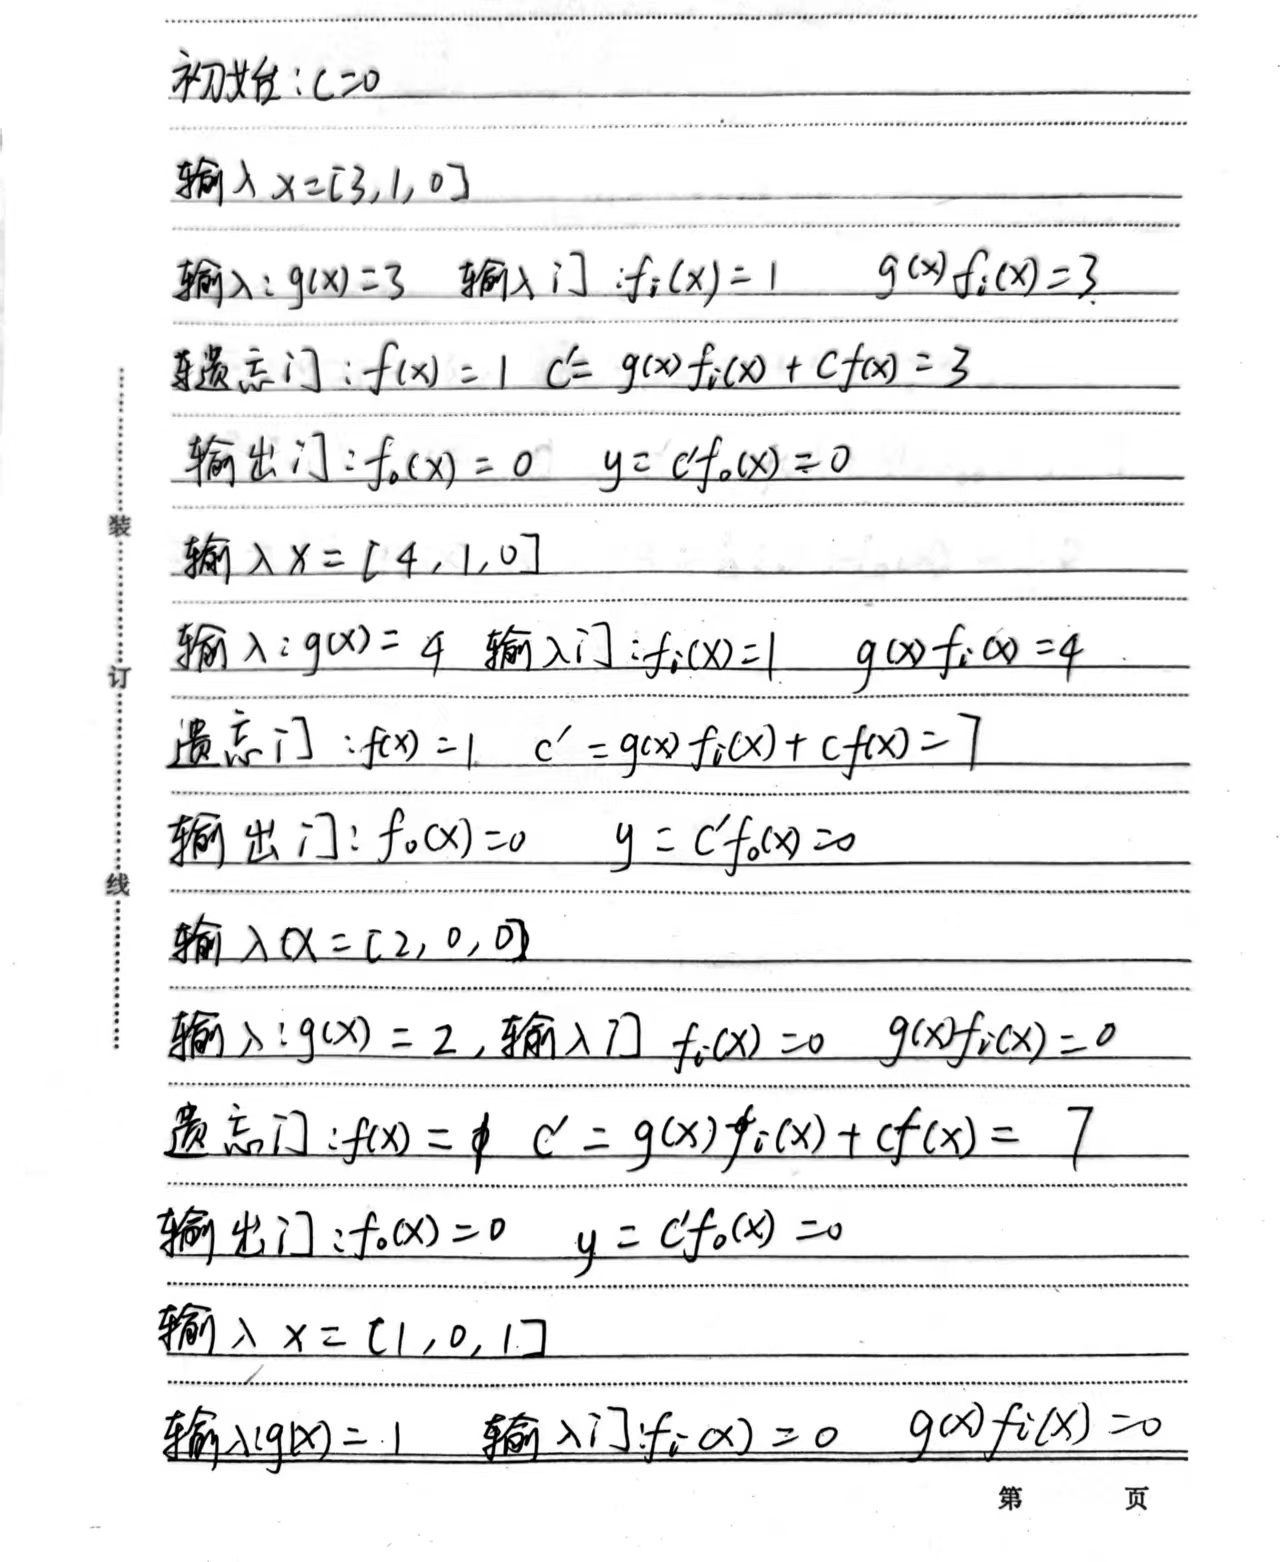 初始：C=0
输入 x=[3,1,0]
输入：g(x)=3 输入门：fi(x)=1 g(x)fi(x)=3
遗忘门：f(x)=1 C'=g(x)fi(x)+Cf(x)=3
输出门：fo(x)=0 y=C'fo(x)=0
输入 x=[4,1,0]
输入：g(x)=4 输入门：fi(x)=1 g(x)fi(x)=4
遗忘门：f(x)=1 C'=g(x)fi(x)+Cf(x)=7
输出门：fo(x)=0 y=C'fo(x)=0
输入 x=[2,0,0]
输入：g(x)=2,输入门 fi(x)=0 g(x)fi(x)=0
遗忘门：f(x)=1 C'=g(x)fi(x)+Cf(x)=7
输出门：fo(x)=0 y=C'fo(x)=0
输入 x=[1,0,1]
输入：g(x)=1 输入门：fi(x)=0 g(x)fi(x)=0
装
订
线
第 页